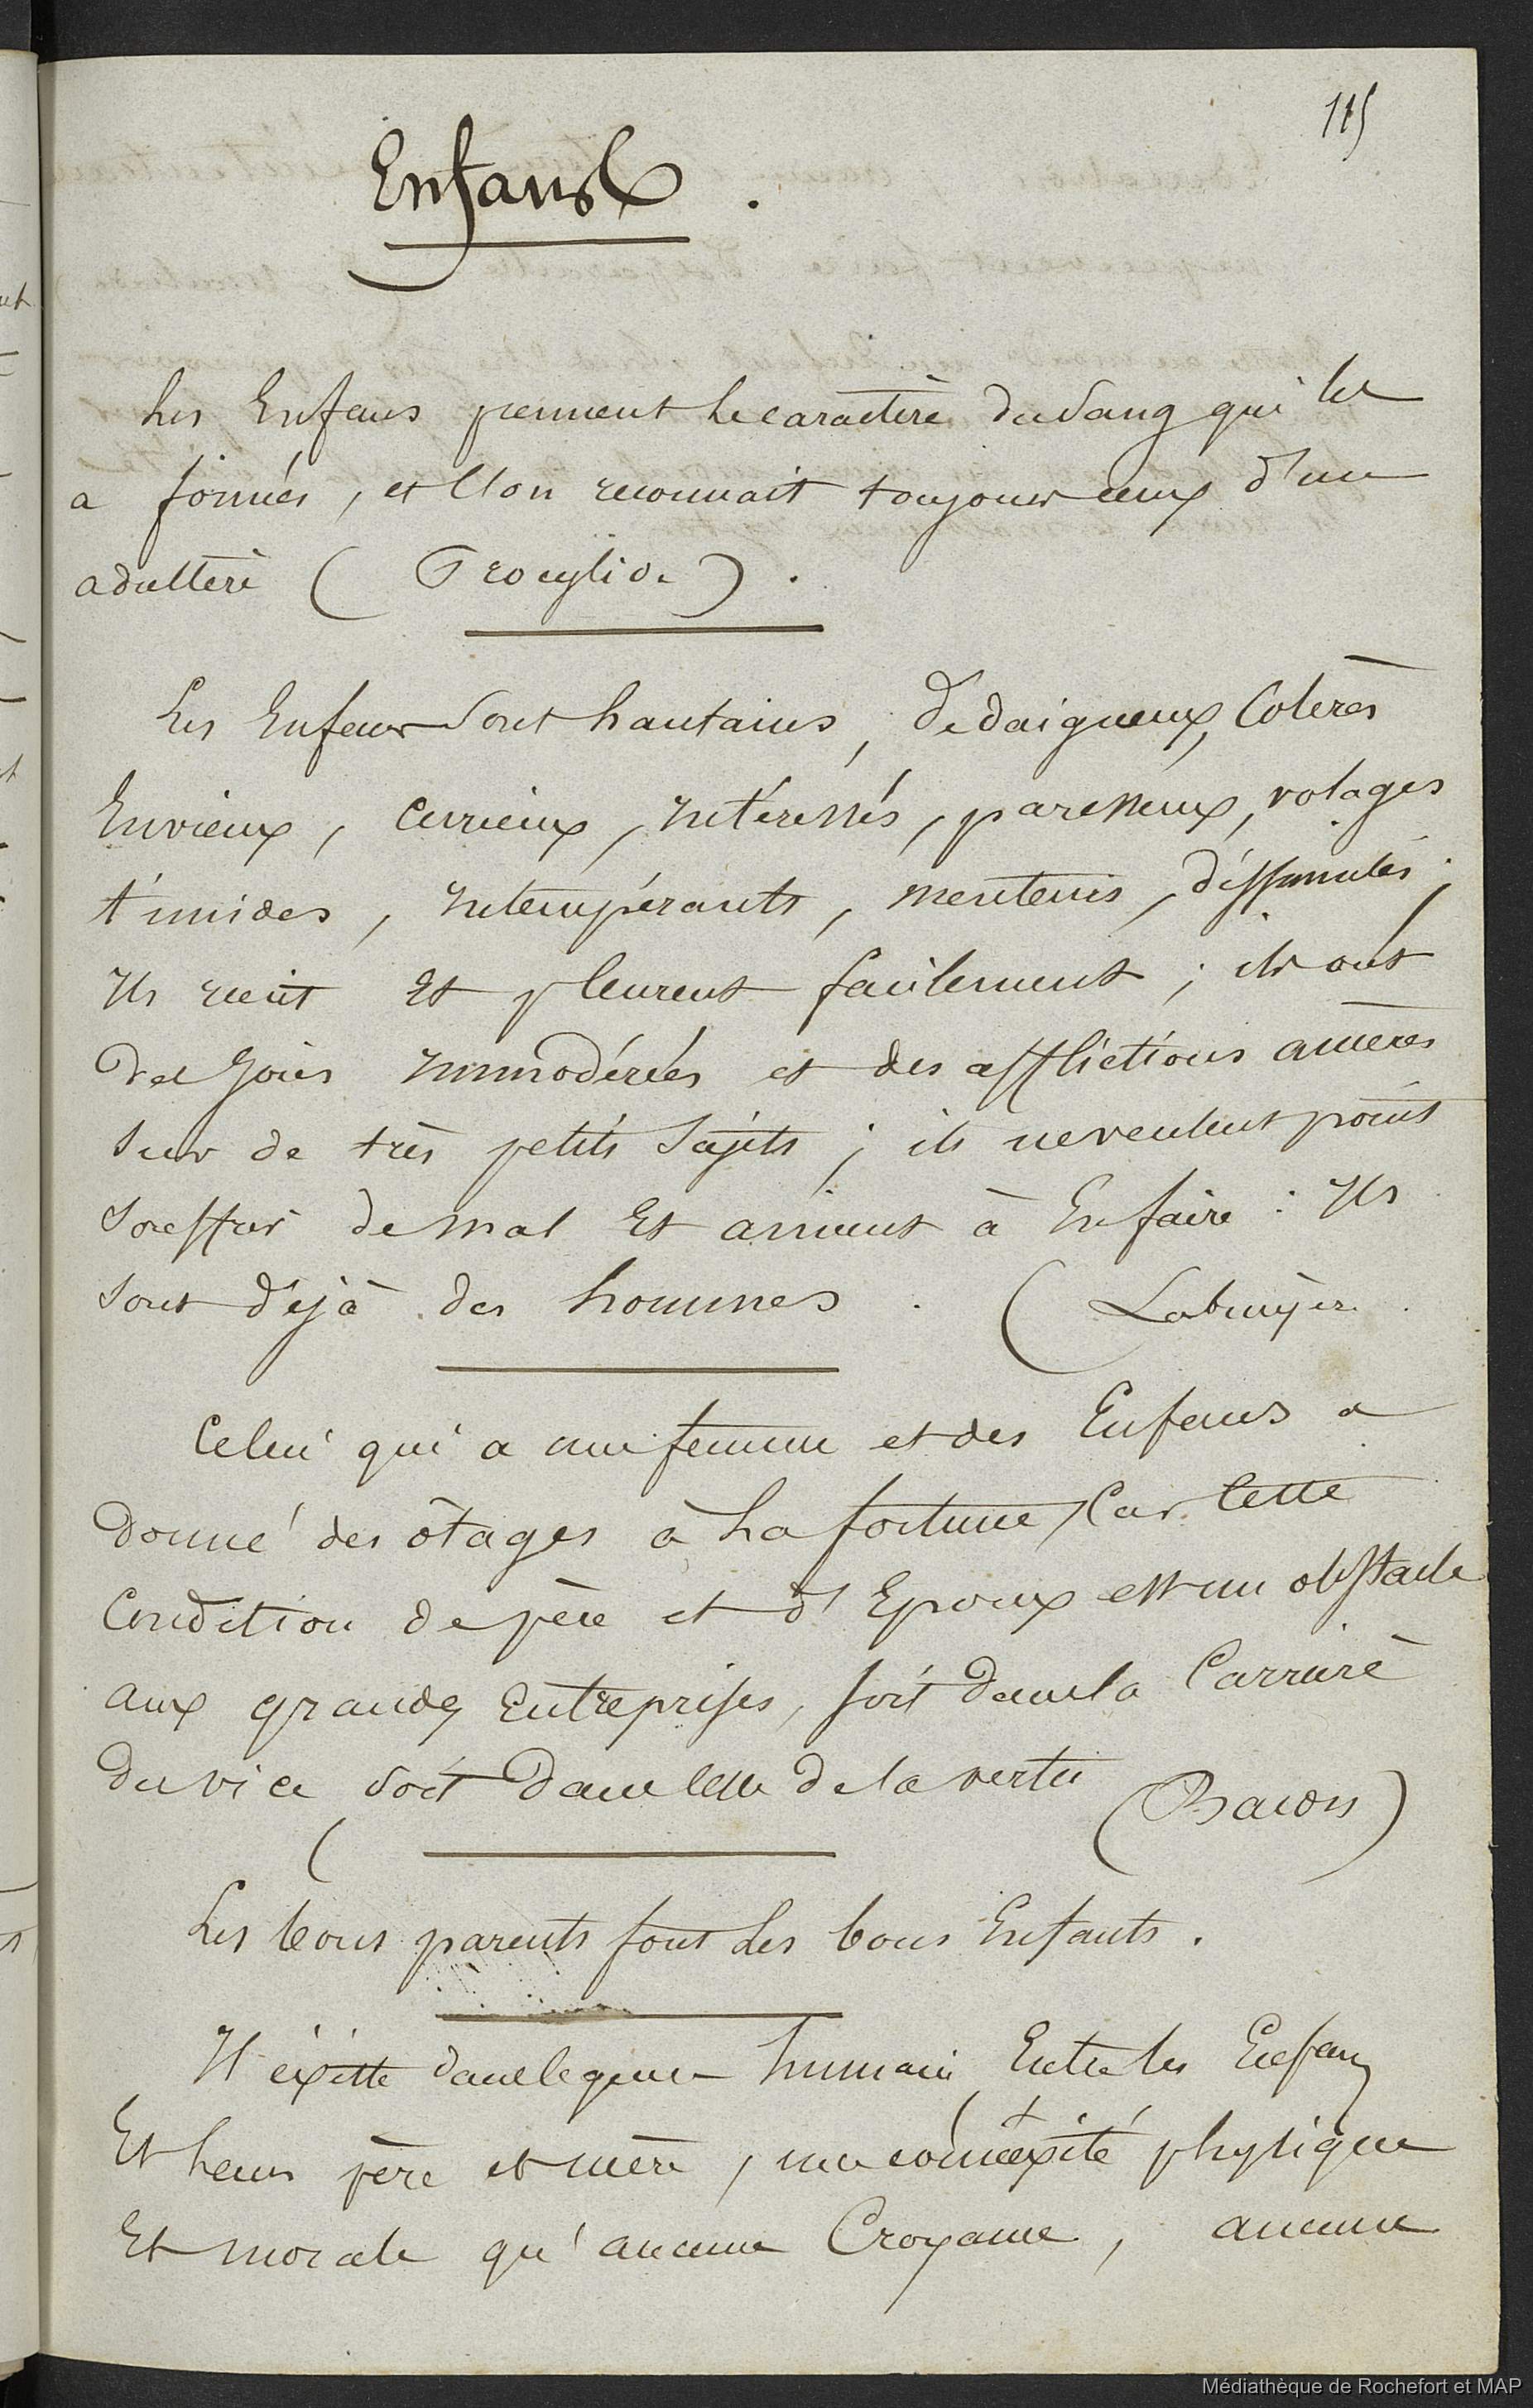 115
Enfans .
Les Enfans prennent le caractère du Sang qui les
a formés, et l'on reconnait toujours ceux d'un
adultère ( Procylide ) .
Les Enfans Sont hautains, dedaigneux, Colères
Envieux, Curieux, Intéressés, paresseux, volages
timides, Intempérants, menteurs, dissimulés ;
Ils rient Et pleurent facilement ; ils ont
des Joies Immodérées et des afflictions amères
Sur de très petits Sujets ; ils ne veulent point
Souffrir de mal Et aiment à En faire : Ils
Sont déjà des hommes . ( Labruyère .
Celui qui a une femme et des Enfans a
Donné des ôtages à La fortune, Car Cette
Condition de père et d'Epoux est un obstacle
aux grandes Entreprises, soit dans la Carrière
du vice Soit Dans celle de la vertu ( Bacon )
Les bons parents font Les bons Enfants .
Il éxiste dans le genre humain Entre les Enfans
Et Leurs père et mère, une connéxité physique
Et morale qu'aucune Croyance, aucune
Médiathèque de Rochefort et MAP